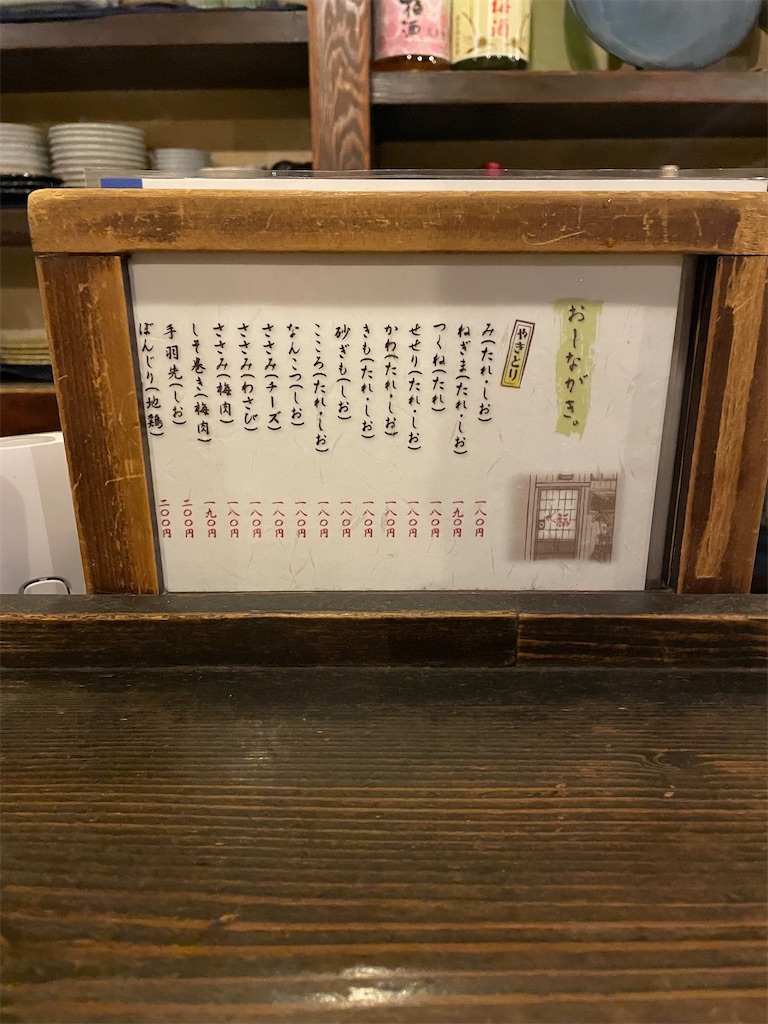 梅酒
梅酒
おしながき。
やきとり
み(たれ・しお) 一八〇円
ねぎま(たれ・しお) 一九〇円
つくね(たれ) 一八〇円
せせり(たれ・しお) 一八〇円
かわ(たれ・しお) 一八〇円
きも(たれ・しお) 一八〇円
砂ぎも(しお) 一八〇円
こころ(たれ・しお) 一八〇円
なんこつ(しお) 一八〇円
ささみ(チーズ) 一八〇円
ささみ(わさび) 一八〇円
ささみ(梅肉) 一八〇円
しそ巻き(梅肉) 一九〇円
手羽先(しお) 二〇〇円
ぼんじり(地鶏) 二〇〇円